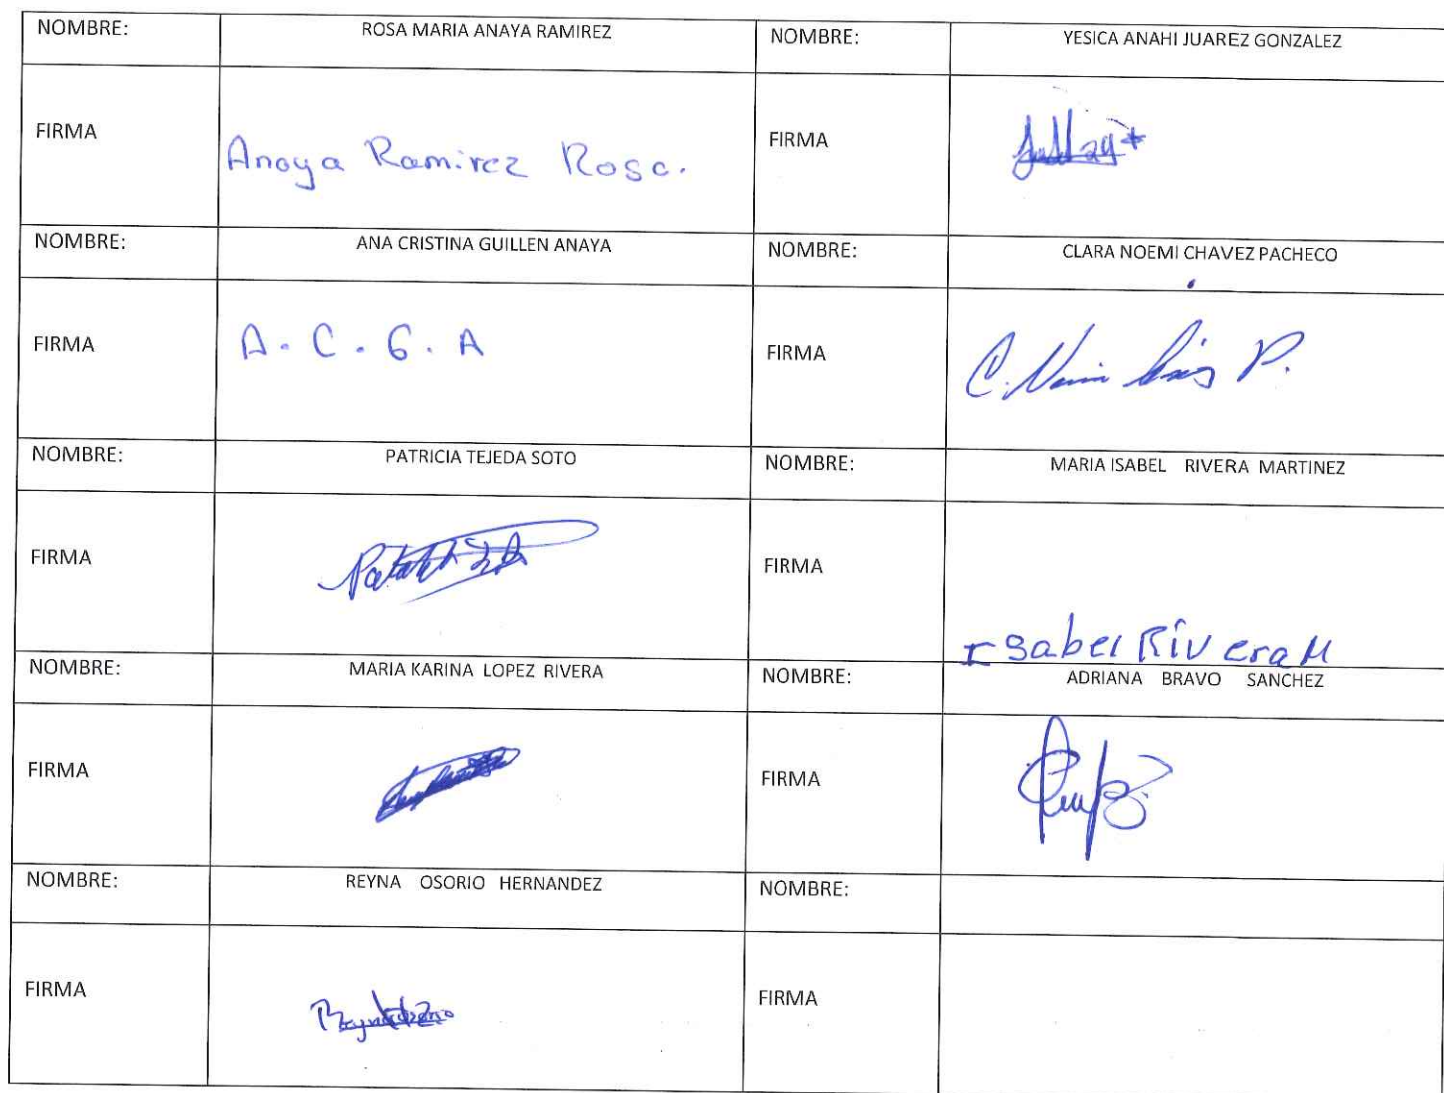 NOMBRE: ROSA MARIA ANAYA RAMIREZ NOMBRE: YESICA ANAHI JUAREZ GONZALEZ
FIRMA Anaya Ramirez Rosa. FIRMA
NOMBRE: ANA CRISTINA GUILLEN ANAYA NOMBRE: CLARA NOEMI CHAVEZ PACHECO
FIRMA A. C. G. A FIRMA C. P.
NOMBRE: PATRICIA TEJEDA SOTO NOMBRE: MARIA ISABEL RIVERA MARTINEZ
FIRMA FIRMA Isabel Rivera M
NOMBRE: MARIA KARINA LOPEZ RIVERA NOMBRE: ADRIANA BRAVO SANCHEZ
FIRMA FIRMA
NOMBRE: REYNA OSORIO HERNANDEZ NOMBRE:
FIRMA FIRMA